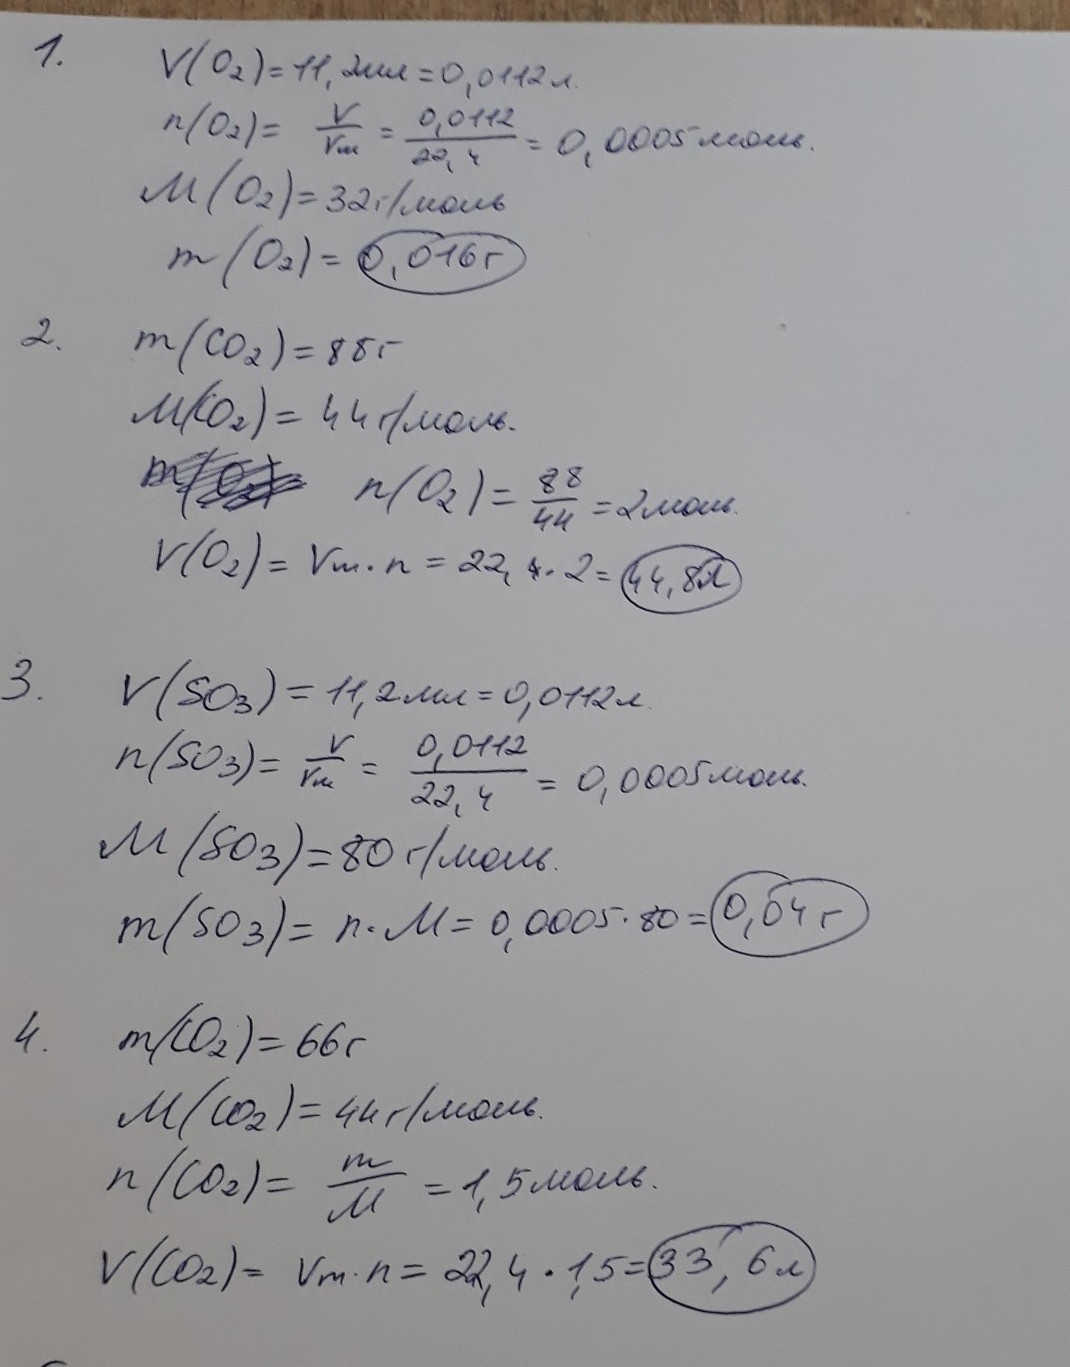 1.
V(O₂)=11,2мл=0,0112л.
n(O₂)= V/Vm = 0,0112/22,4 = 0,0005моль.
M(O₂)=32г/моль
m(O₂)= 0,016г
2.
m(CO₂)=88г
M(CO₂)=44г/моль.
n(O₂)= 88/44 =2моль.
V(O₂)= Vm·n=22,4·2=44,8л
3.
V(SO₃)=11,2мл=0,0112л.
n(SO₃)= V/Vm = 0,0112/22,4 = 0,0005моль.
M(SO₃)=80г/моль.
m(SO₃)= n·M=0,0005·80=0,04г
4.
m(CO₂)=66г
M(CO₂)=44г/моль.
n(CO₂)= m/M =1,5моль.
V(CO₂)= Vm·n=22,4·1,5=33,6л